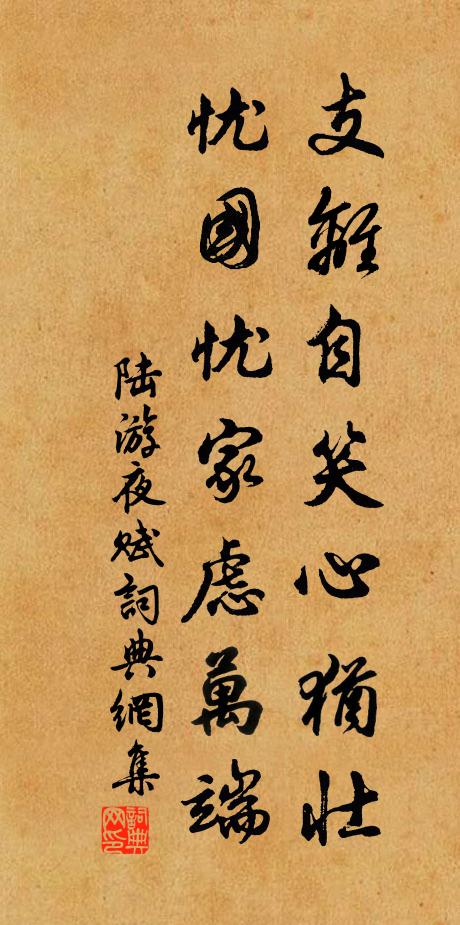 支離自笑心猶壯
忧國忧家慮萬端
陆游夜赋詞典網集
詞典网印